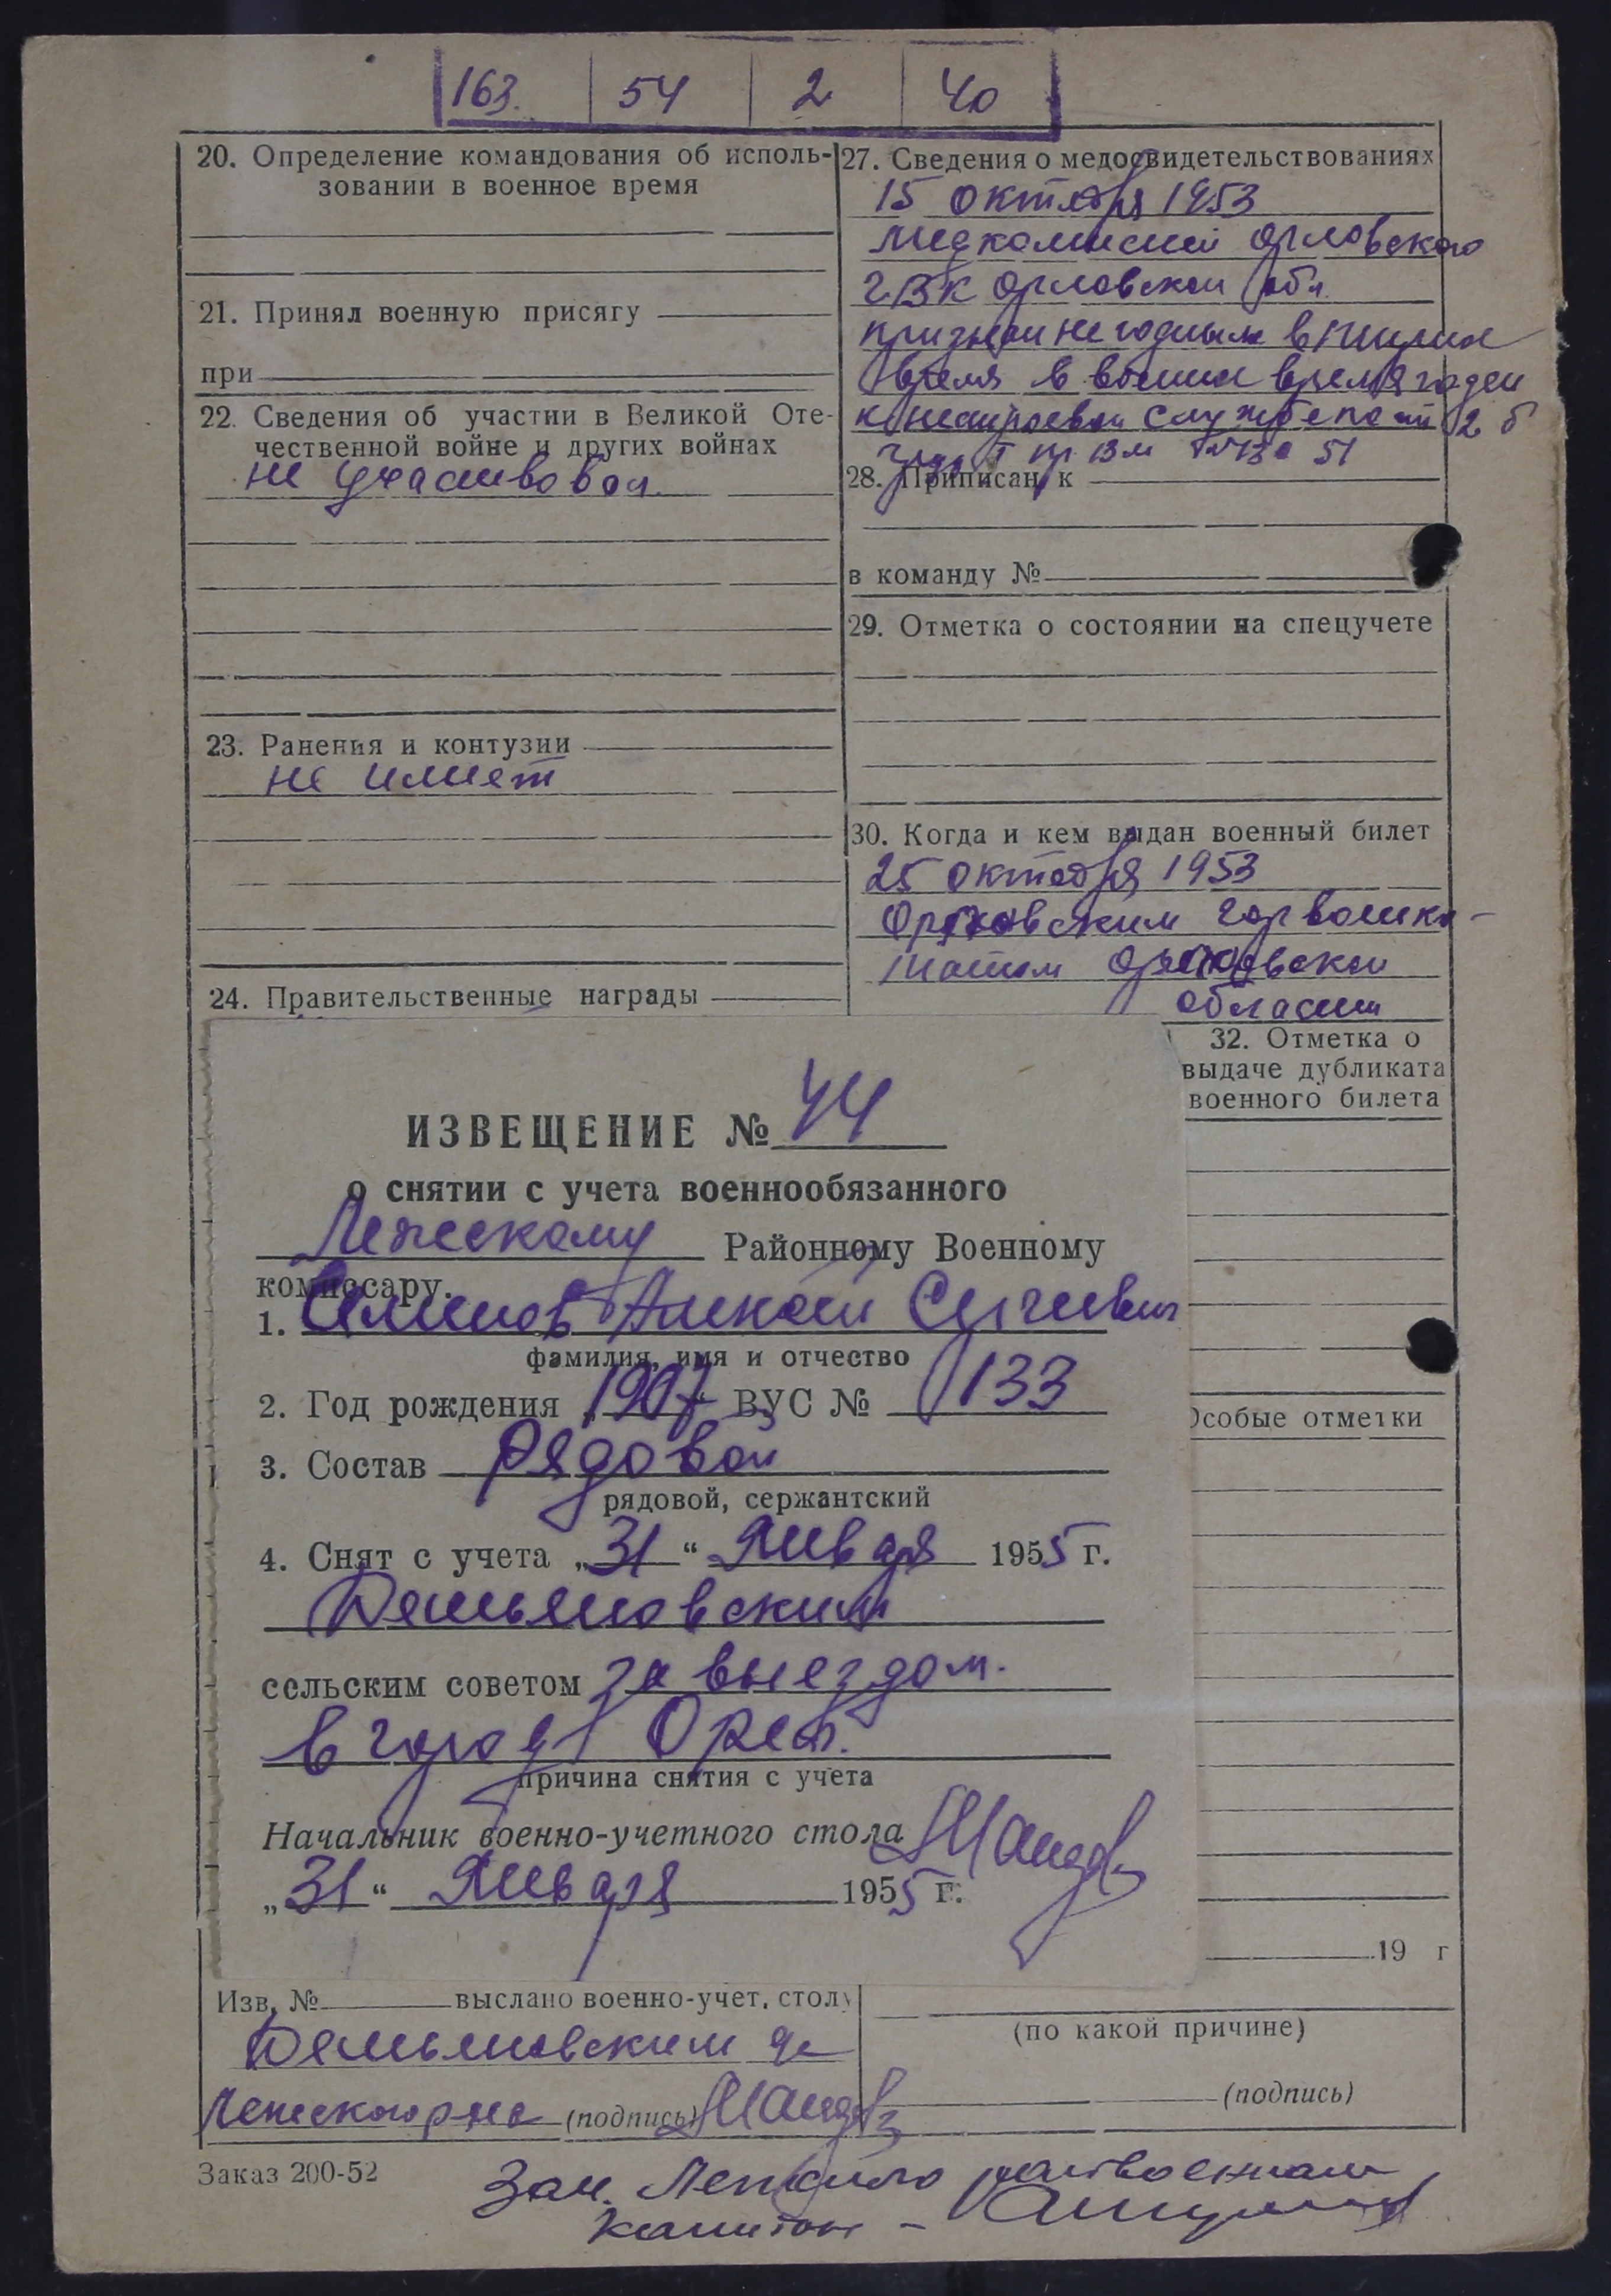 163. 54 2 40
20. Определение командования об исполь-
зовании в военное время
21. Принял военную присягу
при
22. Сведения об участии в Великой Оте-
чественной войне и других войнах
не участвовал
23. Ранения и контузии
не имеет
24. Правительственные награды
27. Сведения о медосвидетельствованиях
15 октября 1953
медкомиссией Орловского
ГВК Орловской обл
признан негодным в мирное
время в военное время годен
к нестроевой службе по ст 2 б
51
28. Приписан к
в команду №
29. Отметка о состоянии на спецучете
30. Когда и кем выдан военный билет
25 октября 1953
Орловским горвоенко-
матом Орловской
области
32. Отметка о
выдаче дубликата
военного билета
Особые отметки
19 г
ИЗВЕЩЕНИЕ № 44
о снятии с учета военнообязанного
Районному Военному
комиссару.
1. Алексей Сергеевич
фамилия, имя и отчество
2. Год рождения „1907“ ВУС № 133
3. Состав рядовой
рядовой, сержантский
4. Снят с учета „31“ Января 1955 г.
Демьяновским
сельским советом за выездом
в город Орел.
причина снятия с учета
Начальник военно-учетного стола
„31“ Января 1955 г.
Изв. № выслано военно-учет. столу
Демьяновским
(подпись)
(по какой причине)
(подпись)
Заказ 200-52
Зам.
капитан -